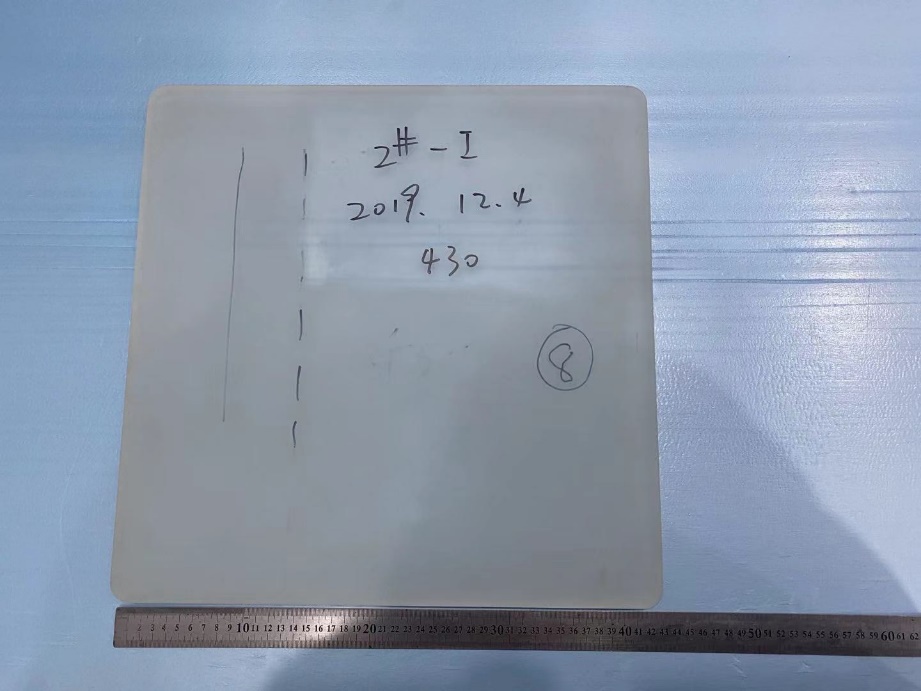 2# - I
2019. 12. 4
430
⑧
1 2 3 4 5 6 7 8 9 10 11 12 13 14 15 16 17 18 19 20 21 22 23 24 25 26 27 28 29 30 31 32 33 34 35 36 37 38 39 40 41 42 43 44 45 46 47 48 49 50 51 52 53 54 55 56 57 58 59 60 61 62